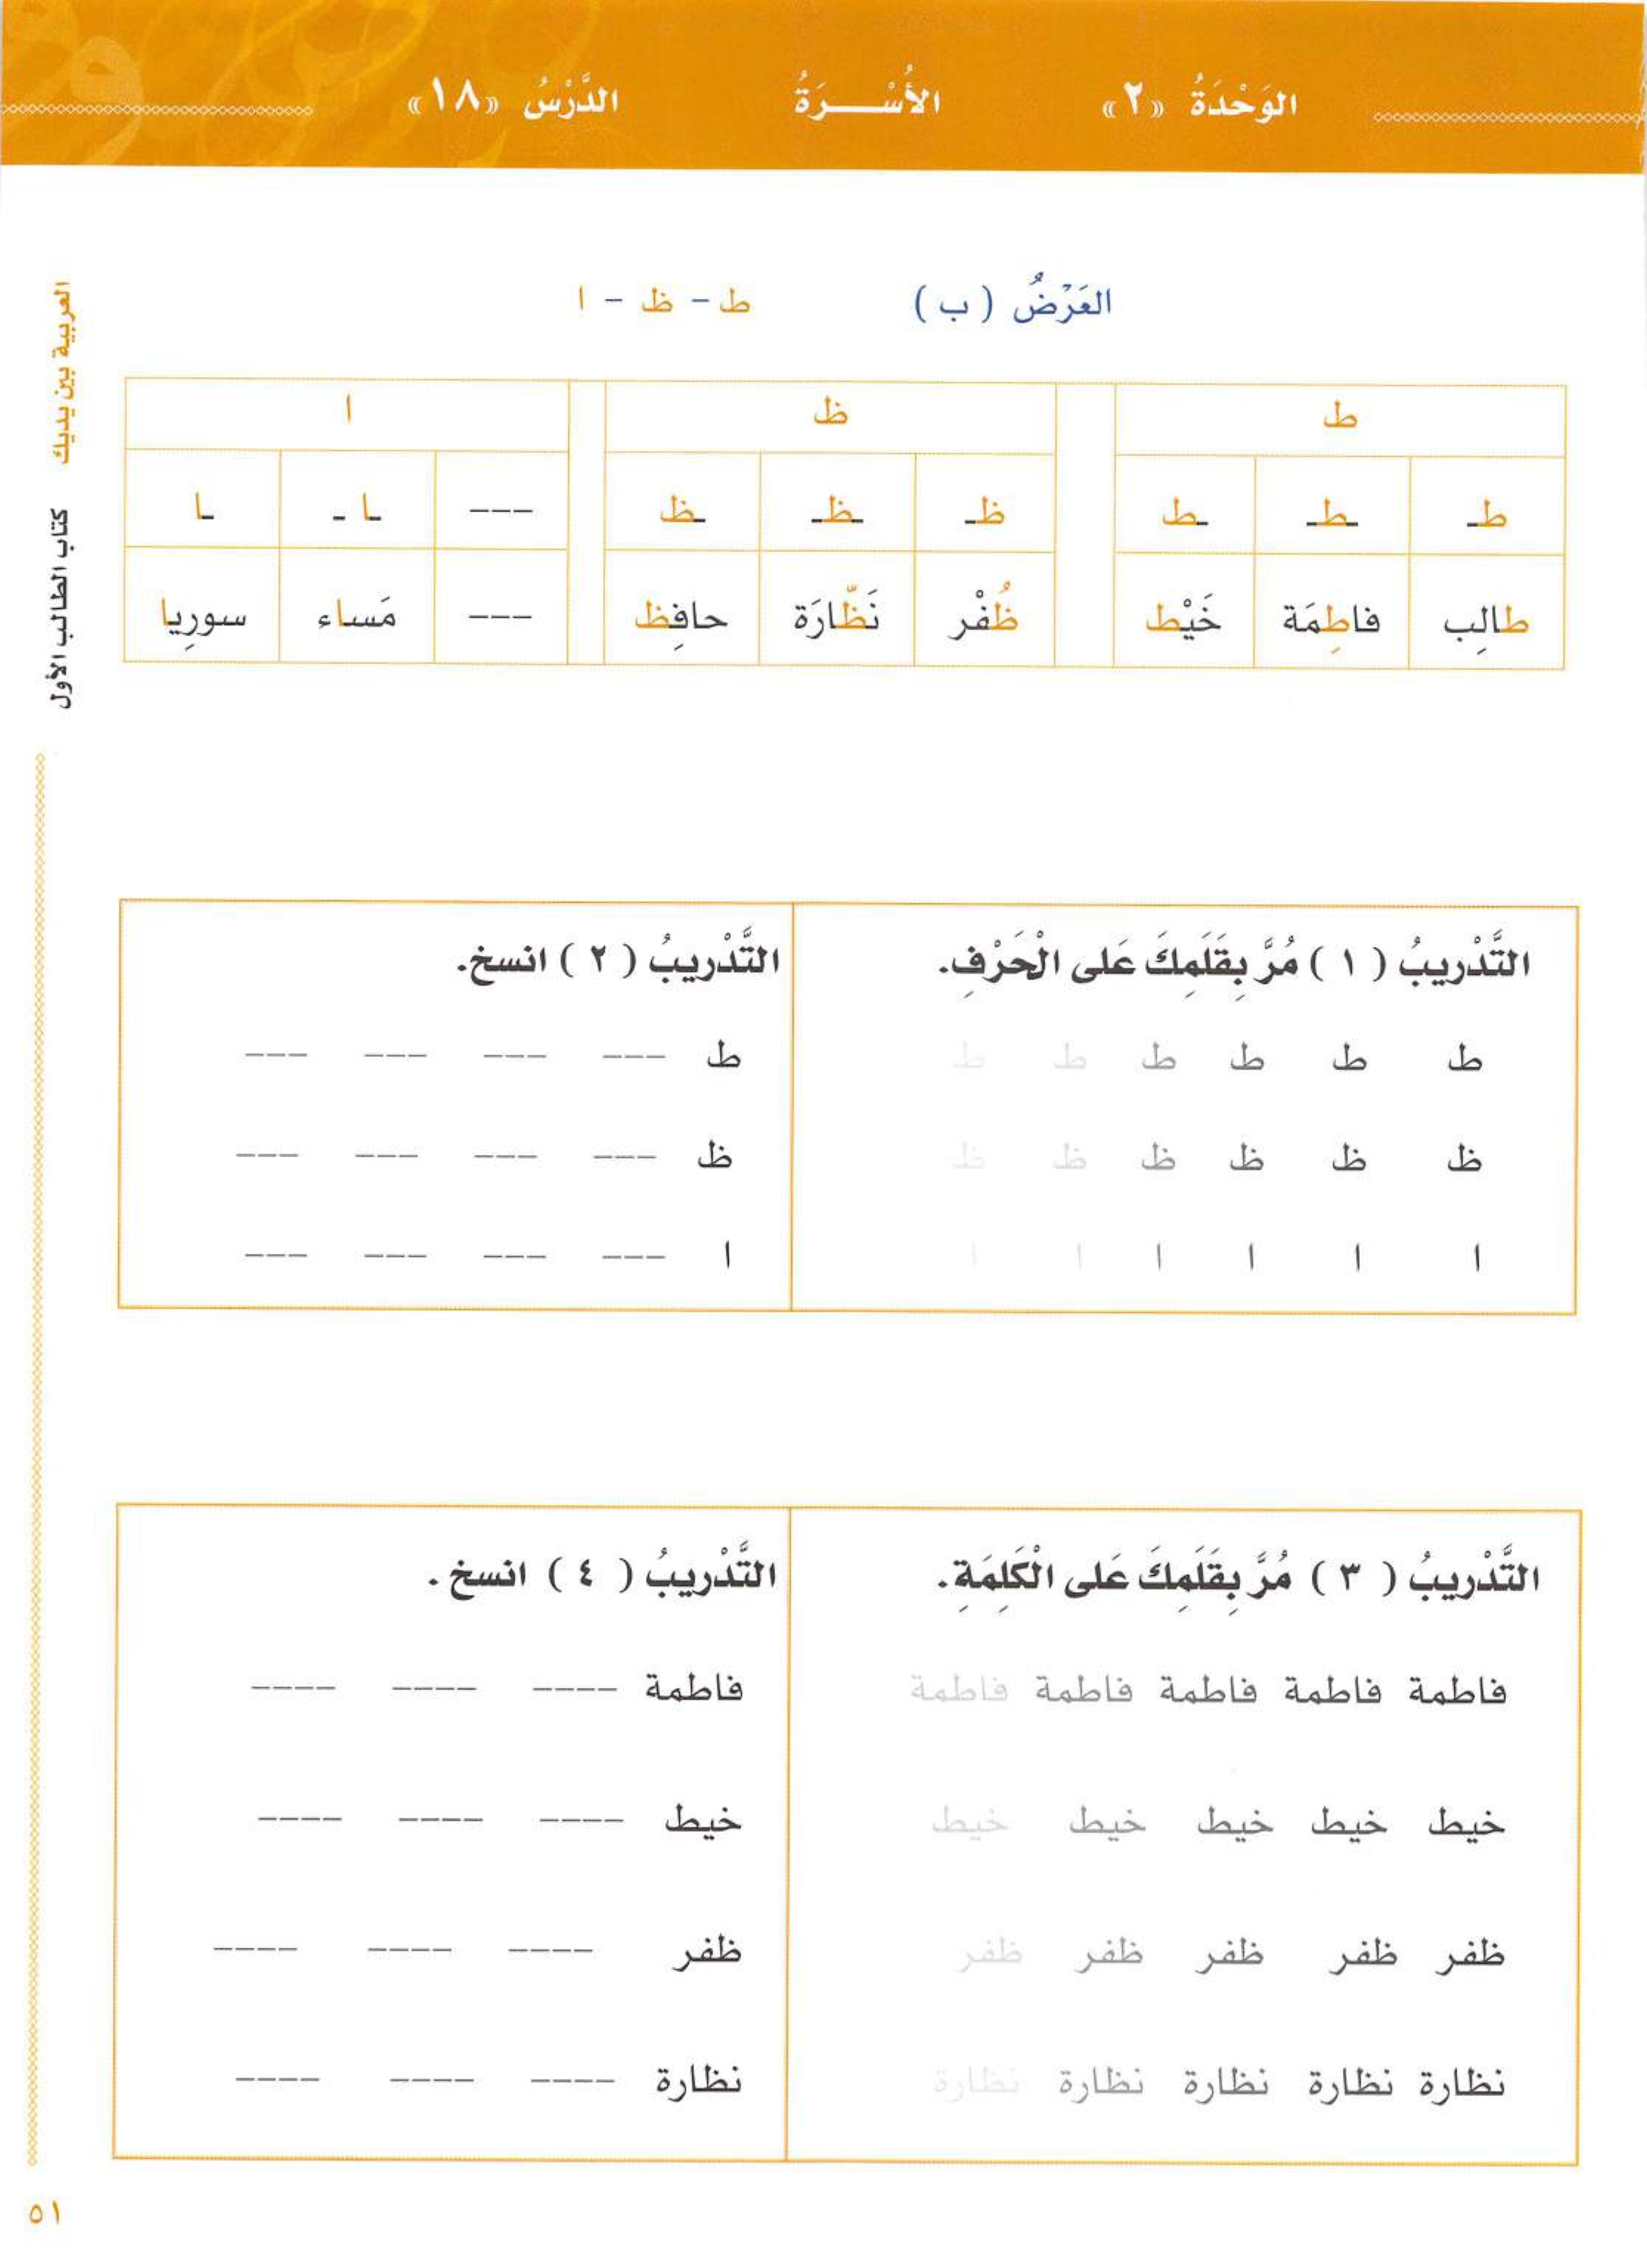 الوَحْدَةُ «٢» الأُسْـــرَةُ الدَّرْسُ «١٨»
العَرْضُ ( ب ) ط - ظ - ا
ط ظ ا
طـ ـطـ ـط ظـ ـظـ ـظ --- ـا - ـا
طالِب فاطِمَة خَيْط ظُفْر نَظّارَة حافِظ --- مَساء سورِيا
التَّدْرِيبُ ( ١ ) مُرَّ بِقَلَمِكَ عَلى الْحَرْفِ.
ط ط ط ط ط ط
ظ ظ ظ ظ ظ ظ
ا ا ا ا ا ا
التَّدْرِيبُ ( ٢ ) انسخ.
ط --- --- --- ---
ظ --- --- --- ---
ا --- --- --- ---
التَّدْرِيبُ ( ٣ ) مُرَّ بِقَلَمِكَ عَلى الْكَلِمَةِ.
فاطمة فاطمة فاطمة فاطمة فاطمة
خيط خيط خيط خيط خيط
ظفر ظفر ظفر ظفر ظفر
نظارة نظارة نظارة نظارة نظارة
التَّدْرِيبُ ( ٤ ) انسخ.
فاطمة ---- ---- ----
خيط ---- ---- ----
ظفر ---- ---- ----
نظارة ---- ---- ----
العربية بين يديك كتاب الطالب الأول
٥١